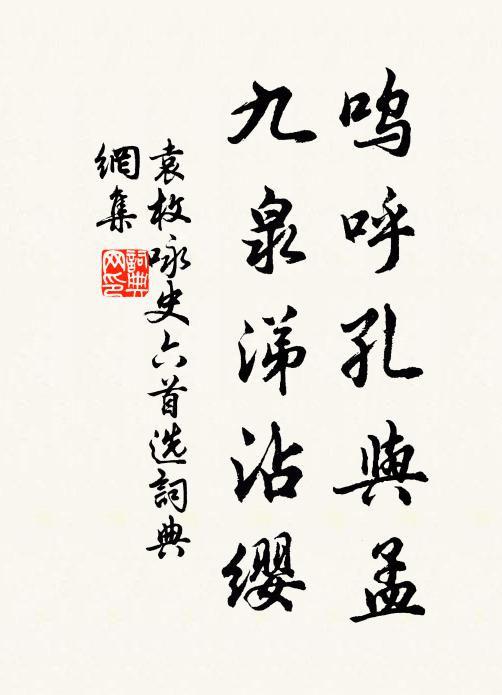 呜呼孔與孟
九泉涕沾缨
袁枚咏史六首选詞典
網集
詞典网印